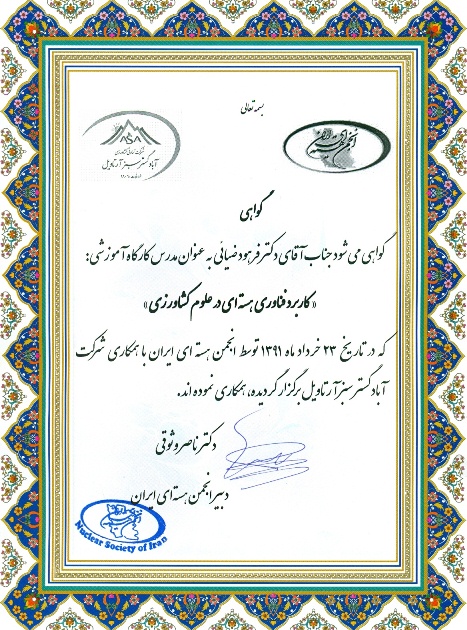 بسمه تعالی
انجمن هسته ای ایران
آبادگستر سبز آرتاویل
گواهی
گواهی می شود جناب آقای دکتر فرهود ضیائی به عنوان مدرس کارگاه آموزشی:
« کاربرد فناوری هسته ای در علوم کشاورزی »
که در تاریخ ۲۳ خرداد ماه ۱۳۹۱ توسط انجمن هسته ای ایران با همکاری شرکت
آبادگستر سبز آرتاویل برگزار گردیده، همکاری نموده اند.
دکتر ناصر وثوقی
دبیر انجمن هسته ای ایران
Nuclear Society of Iran